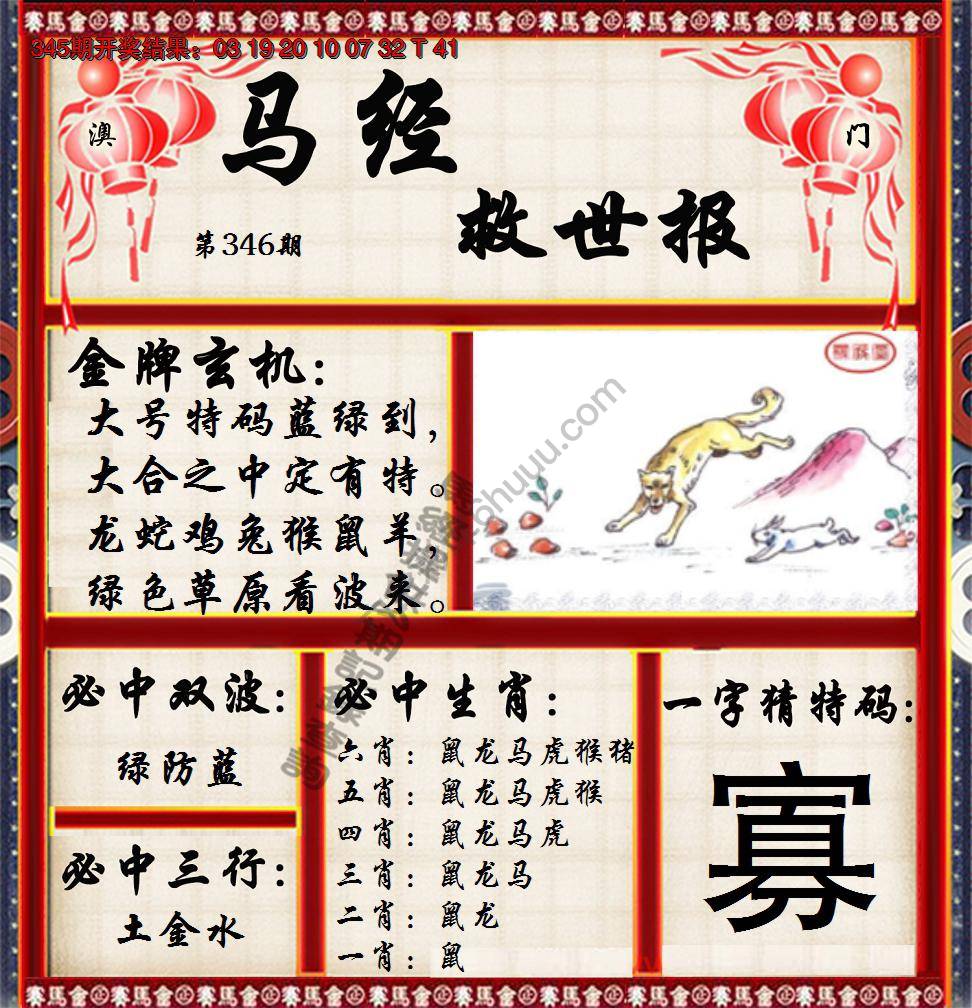 345期开奖结果：03 19 20 10 07 32 T 41
澳
门
马经
救世报
第346期
金牌玄机：
大号特码蓝绿到，
大合之中定有特。
龙蛇鸡兔猴鼠羊，
绿色草原看波来。
必中双波：
绿防蓝
必中三行：
土金水
必中生肖：
六肖：鼠龙马虎猴猪
五肖：鼠龙马虎猴
四肖：鼠龙马虎
三肖：鼠龙马
二肖：鼠龙
一肖：鼠
一字猜特码：
寡